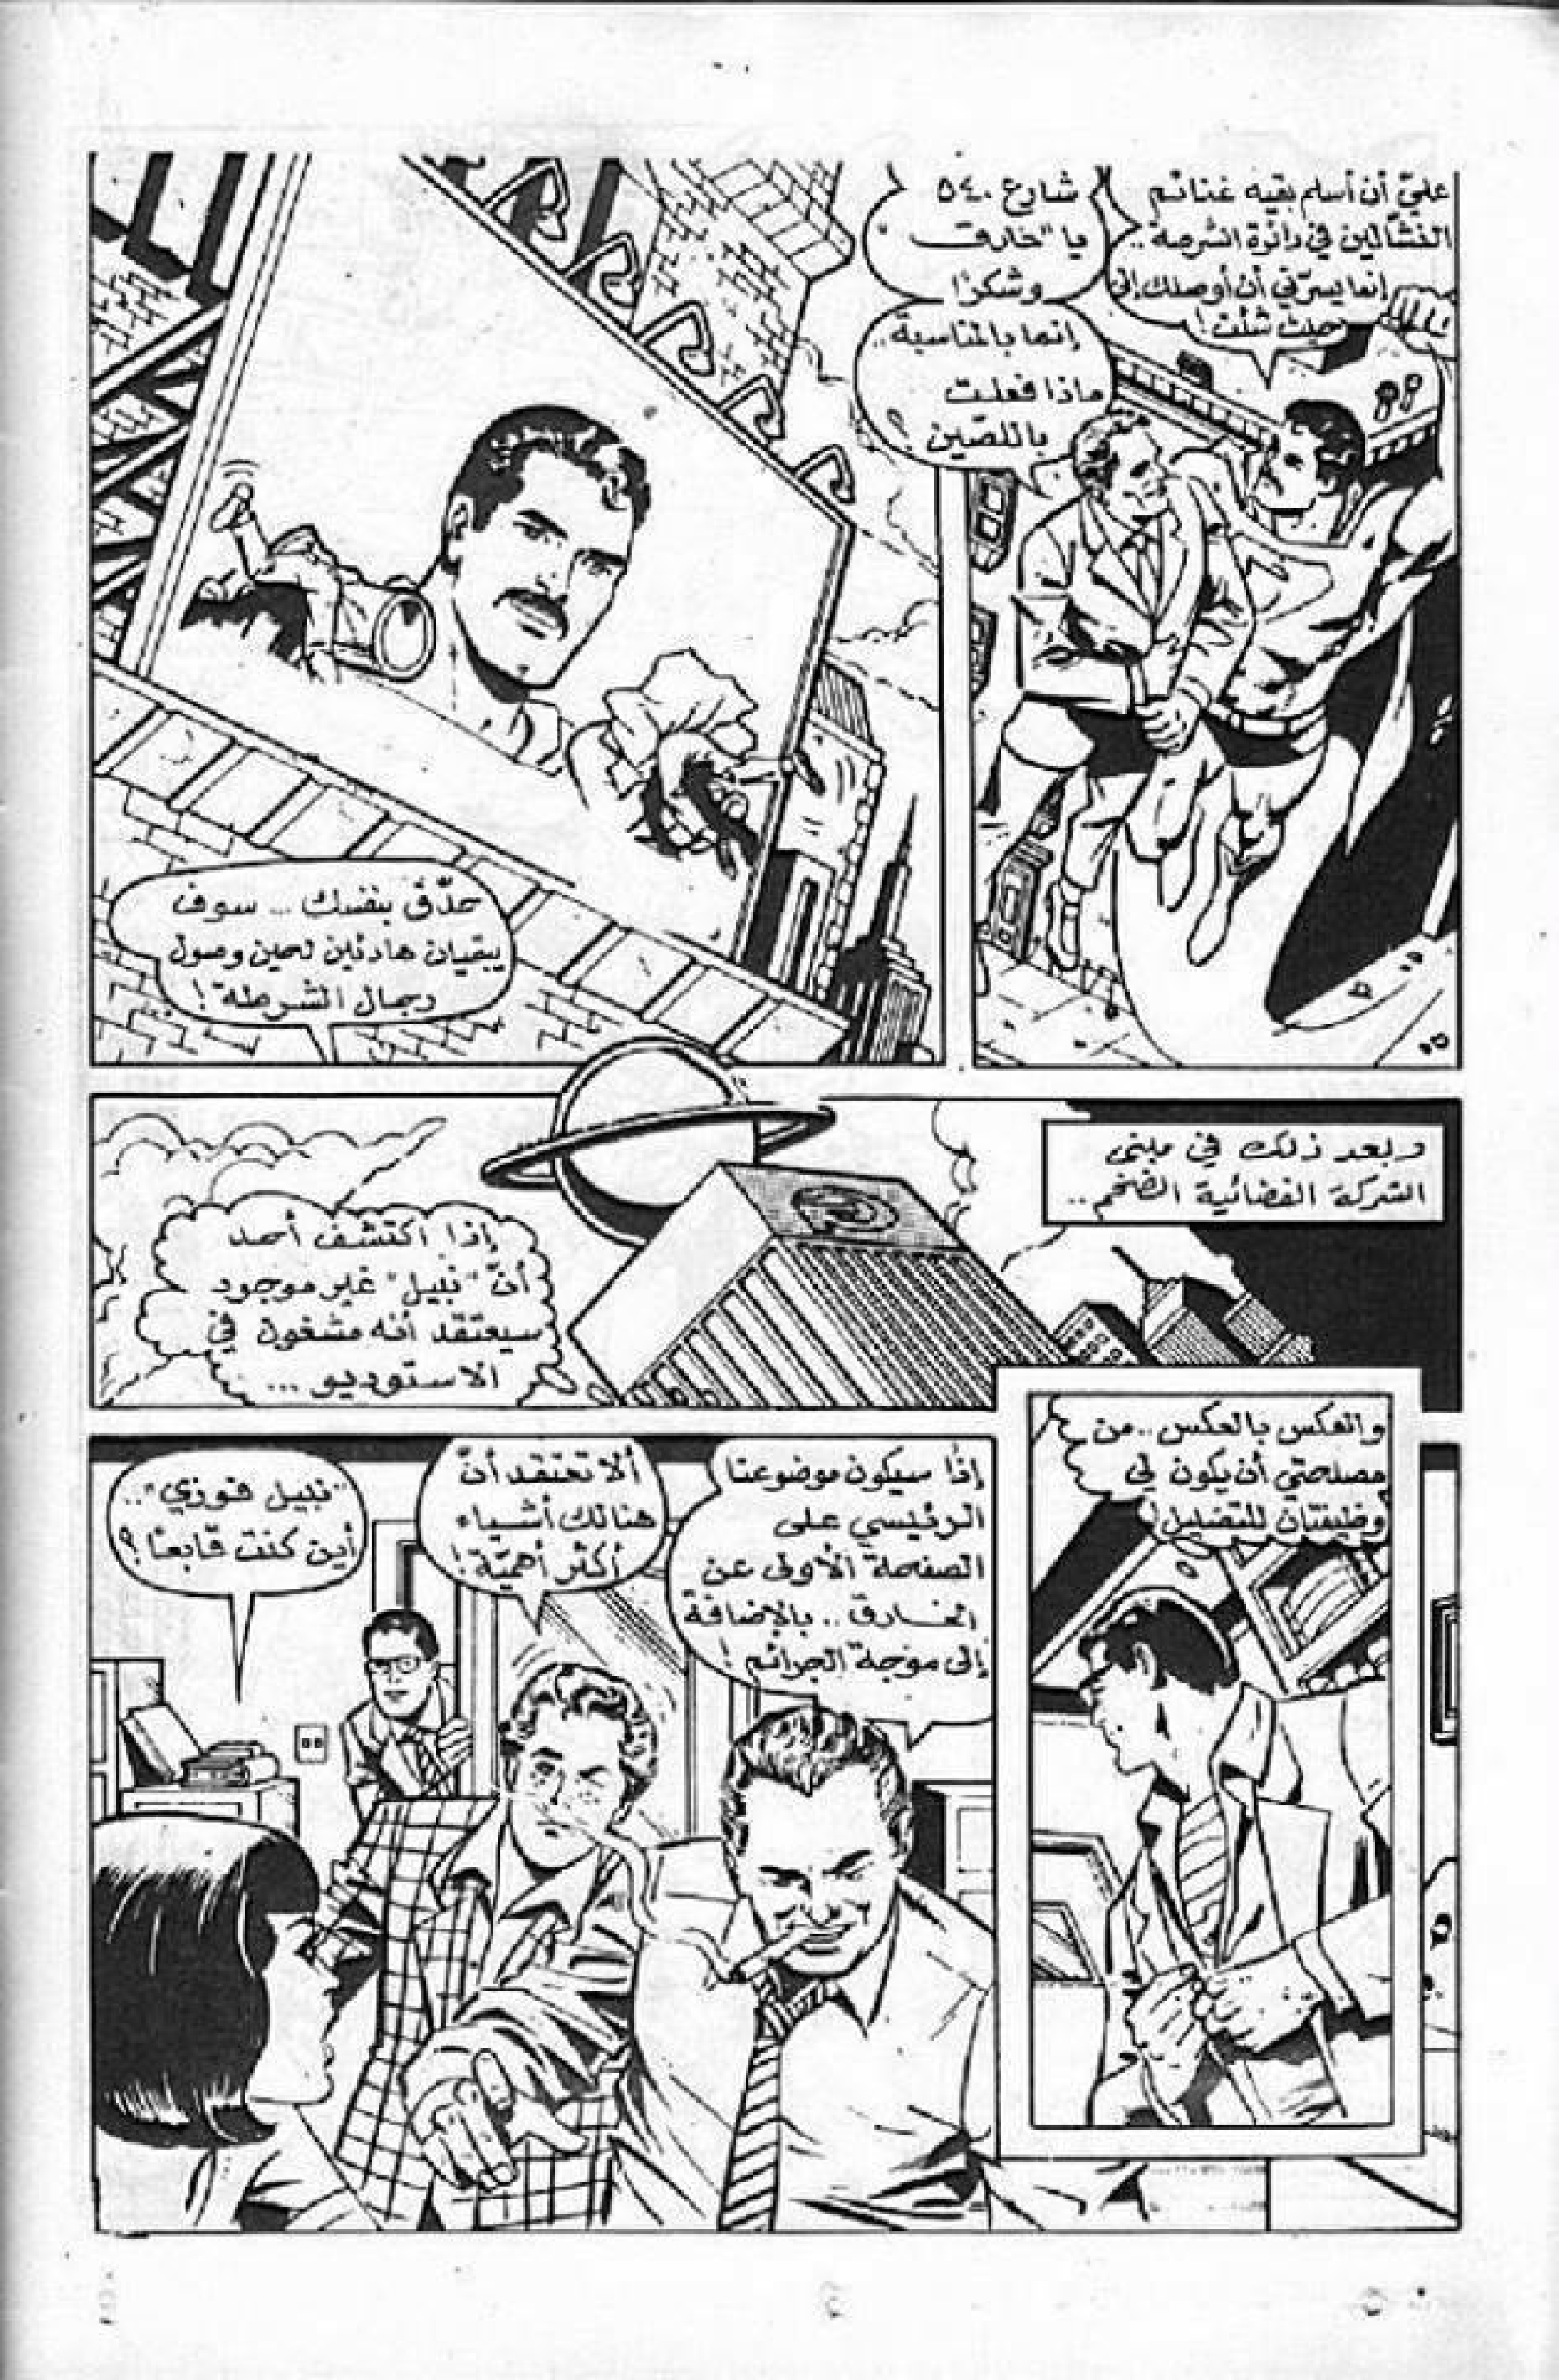 عليّ أن أسلم بقية غنائم
النشّالين في دائرة الشرطة..
إنما يسرّني أن أوصلك إلى
حيث شئت!
شارع ٥٤٠
يا "خارق"
وشكرًا
إنما بالمناسبة..
ماذا فعلت
باللصّين؟
حدّق بنفسك... سوف
يبقيان هادئين لحين وصول
رجال الشرطة!
وبعد ذلك في مبنى
الشركة الفضائية الضخم..
إذا اكتشف أحد
أنّ "نبيل" غير موجود
سيعتقد أنه مشغول في
الاستوديو...
والعكس بالعكس.. من
مصلحتي أن يكون لي
وظيفتان للتضليل!
إذًا سيكون موضوعنا
الرئيسي على
الصفحة الأولى عن
الخارق.. بالإضافة
إلى موجة الجرائم!
ألا تعتقد أنّ
هنالك أشياء
أكثر أهميّة!
"نبيل فوزي"..
أين كنت قابعًا؟